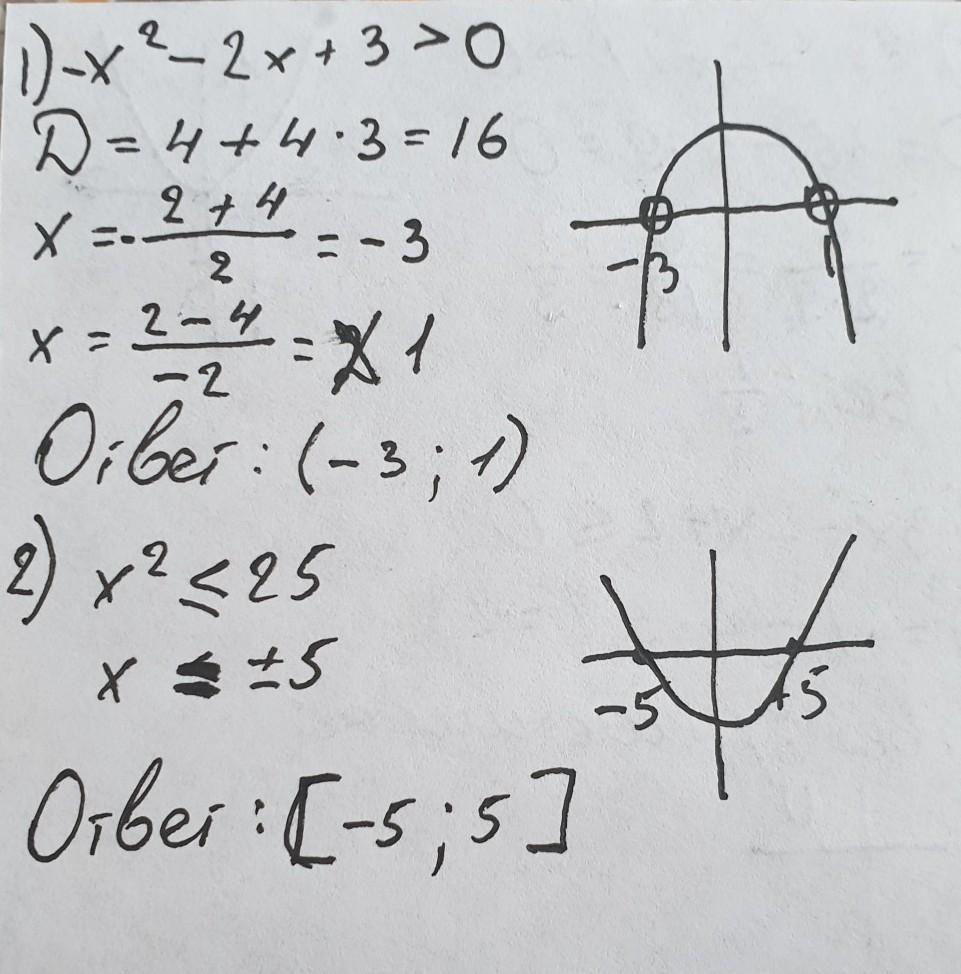 1) -x² - 2x + 3 > 0
D = 4 + 4 · 3 = 16
x = - (2 + 4)/2 = -3
x = (2 - 4)/-2 = 1
-3
1
Ответ: (-3; 1)
2) x² ≤ 25
x ≤ ±5
-5
+5
Ответ: [-5; 5]